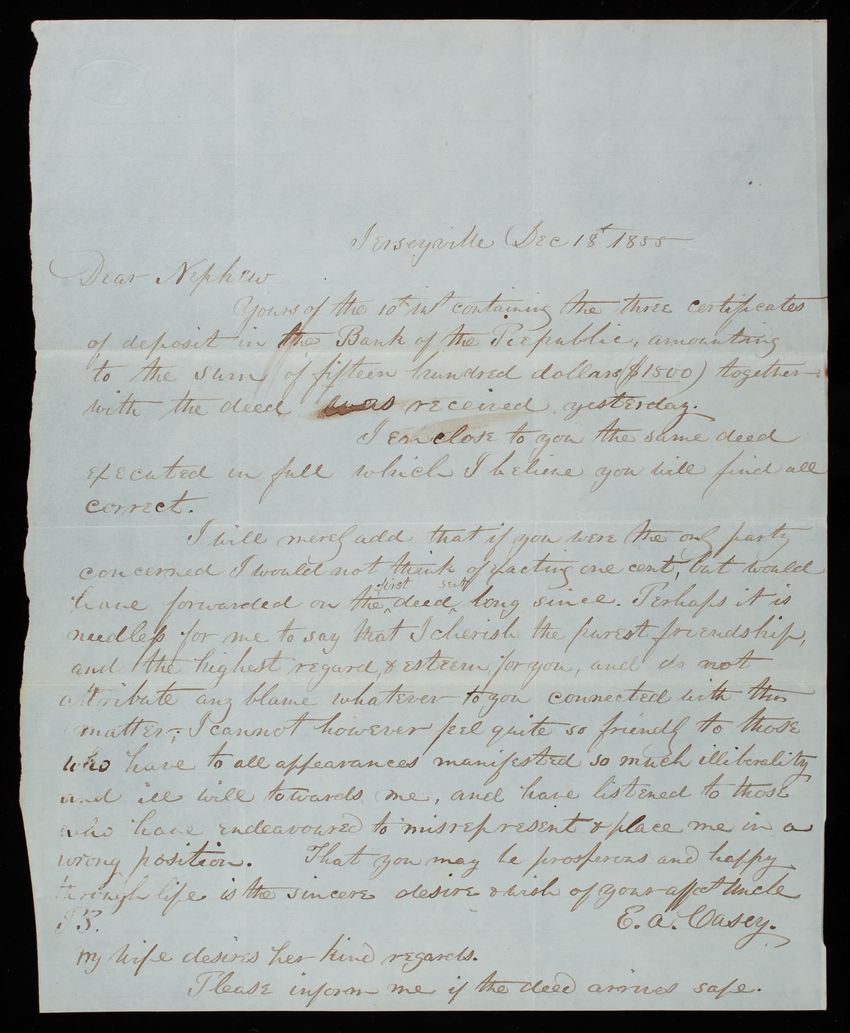 Jerseyville Dec 18t 1855
Dear Nephew
Yours of the 10t inst containing the three certificates
of deposit in the Bank of the Republic, amounting
to the sum of fifteen hundred dollars ($1500) together
with the deed was received yesterday.
I enclose to you the same deed
executed in full which I believe you will find all
correct.
I will merely add that if you were the only party
concerned I would not think of exacting one cent, but would
first sent
have forwarded on the deed long since. Perhaps it is
needless for me to say that I cherish the purest friendship,
and the highest regard, & esteem for you, and do not
attribute any blame whatever to you connected with this
matter; I cannot however feel quite so friendly to those
who have to all appearances manifested so much illiberality
and ill will towards me, and have listened to those
who have endeavoured to misrepresent & place me in a
wrong position. That you may be prosperous and happy
through life is the sincere desire & wish of your affct Uncle
E. A. Casey.
P.S.
My wife desires her kind regards.
Please inform me if the deed arrives safe.